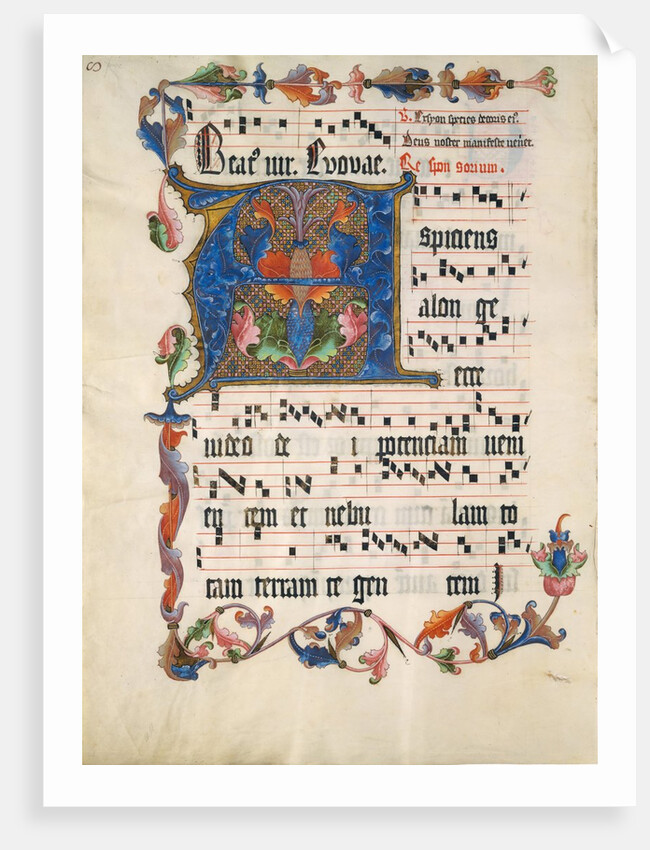 Beatꝰ uir. Evovae.
V. Ex syon species decoris eiꝰ.
Deus noster manifeste veniet.
Re spon sorium.
A
spiciens
alon ge
ecce
uideo de i potenciam ueni
en tem et nebu lam to
tam terram te gen tem I